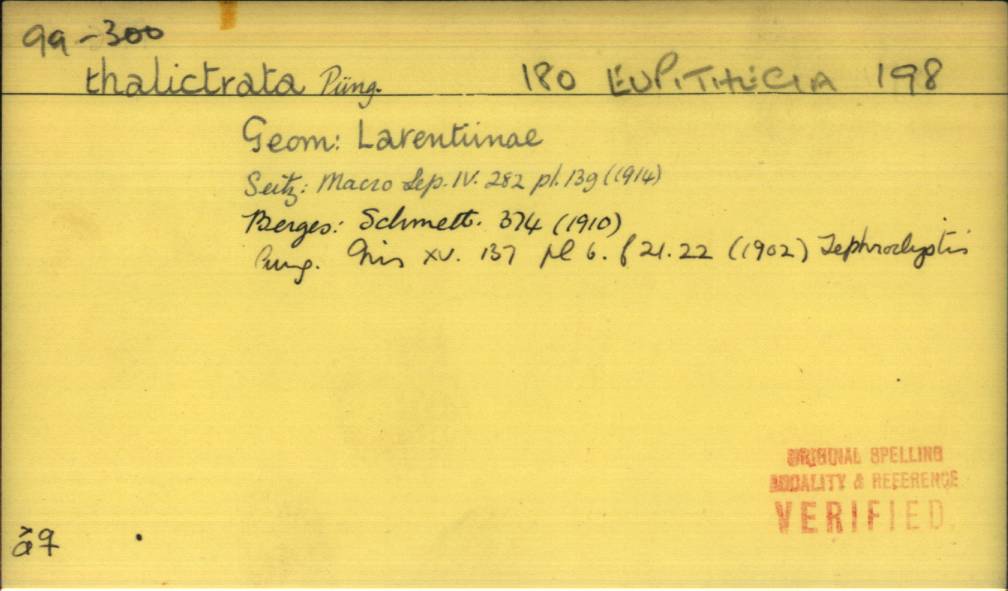 99-300
thalictrata Püng. 180 EUPITHECIA 198
Geom: Larentiinae
Seitz: Macro Lep. IV. 282 pl. 13g (1914)
Berges: Schmett. 374 (1910)
Pung. Iris XV. 137 pl 6. f 21.22 (1902) Tephroclystis
ORIGINAL SPELLING
MODALITY & REFERENCE
VERIFIED.
♀